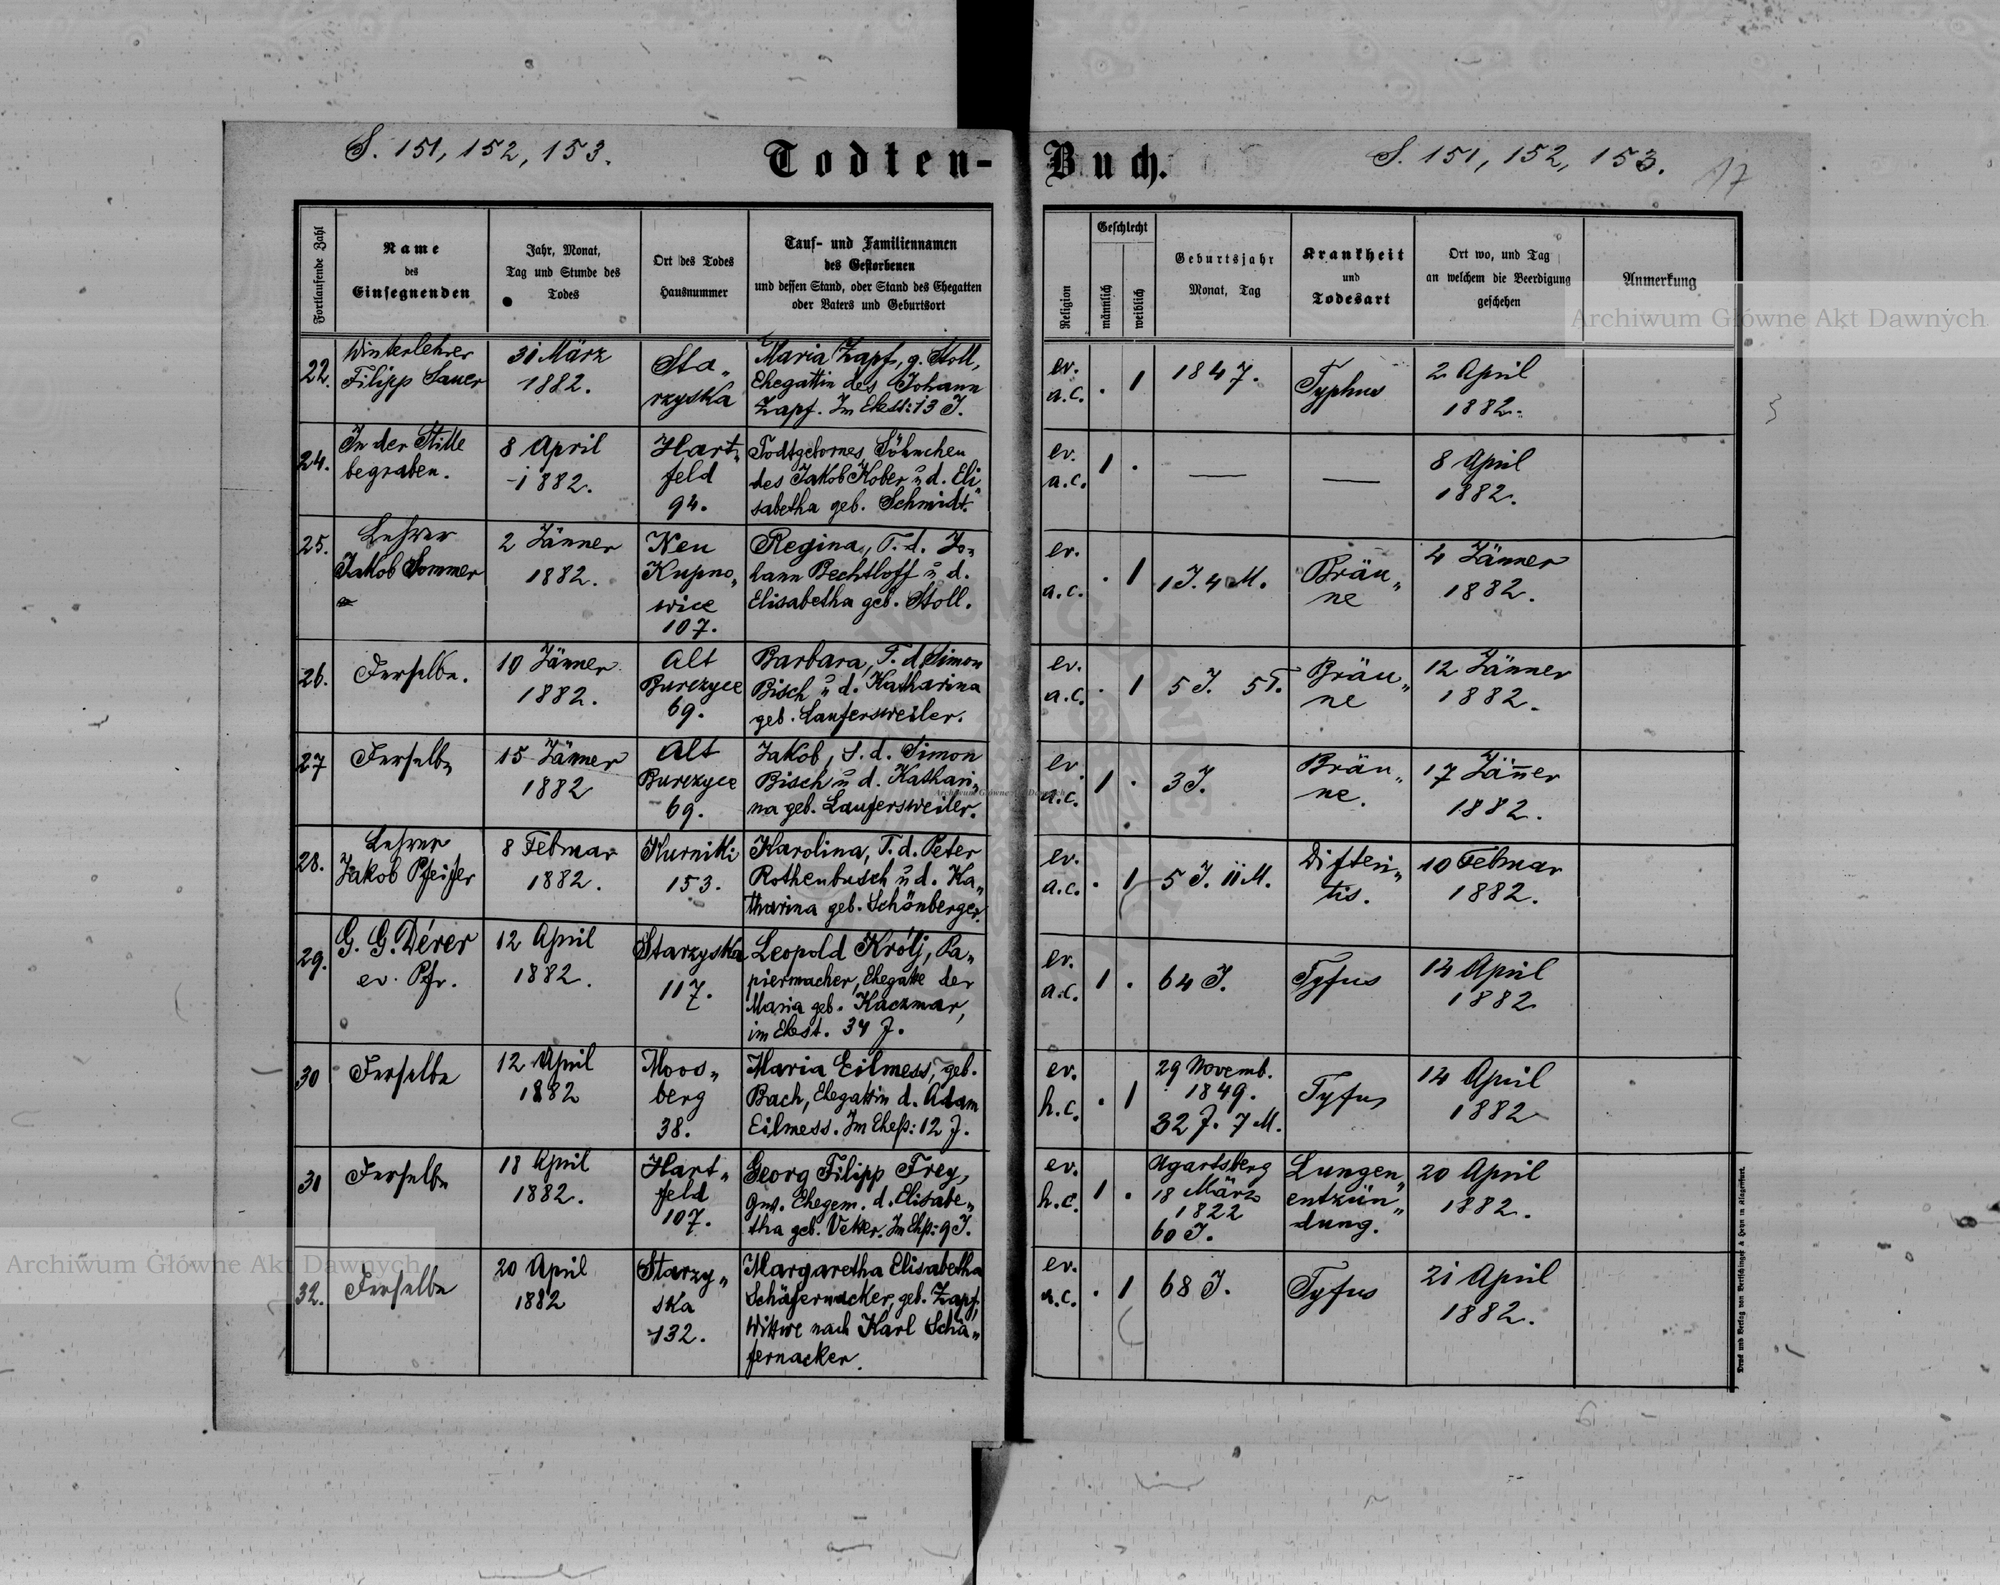 S. 151, 152, 153.
Todten-
Buch.
S. 151, 152, 153.
17
Fortlaufende Zahl
Name
des
Einsegnenden
Jahr, Monat,
Tag und Stunde des
Todes
Ort des Todes
Hausnummer
Tauf- und Familiennamen
des Gestorbenen
und dessen Stand, oder Stand des Ehegatten
oder Vaters und Geburtsort
Religion
Geschlecht
männlich
weiblich
Geburtsjahr
Monat, Tag
Krankheit
und
Todesart
Ort wo, und Tag
an welchem die Beerdigung
geschehen
Anmerkung
22.
Winterlehrer
Filipp Sauer
31 März
1882.
Sta„
rzyska
Maria Zapf, g. Stoll,
Ehegattin des Johann
Zapf. Im Ehest: 13 J.
ev.
a.c.
. 1
1847.
Typhus
2 April
1882.
24.
In der Stille
begraben.
8 April
1882.
Hart„
feld
94.
Todtgebornes Söhnchen
des Jakob Kober u. d. Eli„
sabetha geb. Schmidt.
ev.
a.c.
1 .
—
—
8 April
1882.
25.
Lehrer
Jakob Sommer
2 Jänner
1882.
Neu
Kupno„
wice
107.
Regina, T. d. Jo„
hann Bechtloff u. d.
Elisabetha geb. Stoll.
ev.
a.c.
. 1
1 J. 4 M.
Bräu„
ne
4 Jänner
1882.
26.
Derselbe.
10 Jänner
1882.
Alt
Burczyce
69.
Barbara, T. d. Simon
Bisch u. d. Katharina
geb. Laufersweiler.
ev.
a.c.
. 1
5 J. 5 T.
Bräu„
ne
12 Jänner
1882.
27
Derselbe
15 Jänner
1882
Alt
Burczyce
69.
Jakob, S. d. Simon
Bisch u. d. Kathari„
na geb. Laufersweiler.
ev.
a.c.
1 .
3 J.
Bräu„
ne.
17 Jänner
1882.
28.
Lehrer
Jakob Pfeifer
8 Februar
1882.
Kurniki
153.
Karolina, T. d. Peter
Rothenbusch u. d. Ka„
tharina geb. Schönberger.
ev.
a.c.
. 1
5 J. 11 M.
Difteri„
tis.
10 Februar
1882.
29.
G. G. Dérer
ev. Pfr.
12 April
1882.
Starzyska
117.
Leopold Królj, Pa„
piermacher, Ehegatte der
Maria geb. Kaczmar,
im Ehest. 34 J.
ev.
a.c.
1 .
64 J.
Tyfus
14 April
1882
30
Derselbe
12 April
1882
Moos„
berg
38.
Maria Eilmess, geb.
Bach, Ehegattin d. Adam
Eilmess. Im Ehest: 12 J.
ev.
h.c.
. 1
29 Novemb.
1849.
32 J. 7 M.
Tyfus
14 April
1882
31
Derselbe
18 April
1882.
Hart„
feld
107.
Georg Filipp Frey,
Gw. Ehegem. d. Elisabe„
tha geb. Vetter. Im Ehst: 9 J.
ev.
h.c.
1 .
Ugartsberg
18 März
1822
60 J.
Lungen„
entzün„
dung.
20 April
1882.
32.
Derselbe
20 April
1882
Starzy„
ska
132.
Margaretha Elisabetha
Schäfernacker, geb. Zapf,
Wittwe nach Karl Schä„
fernacker.
ev.
a.c.
. 1
68 J.
Tyfus
21 April
1882.
Druck und Verlag von Bertschinger & Heyn in Klagenfurt.
Archiwum Główne Akt Dawnych
Archiwum Główne Akt Dawnych
Archiwum Główne Akt Dawnych